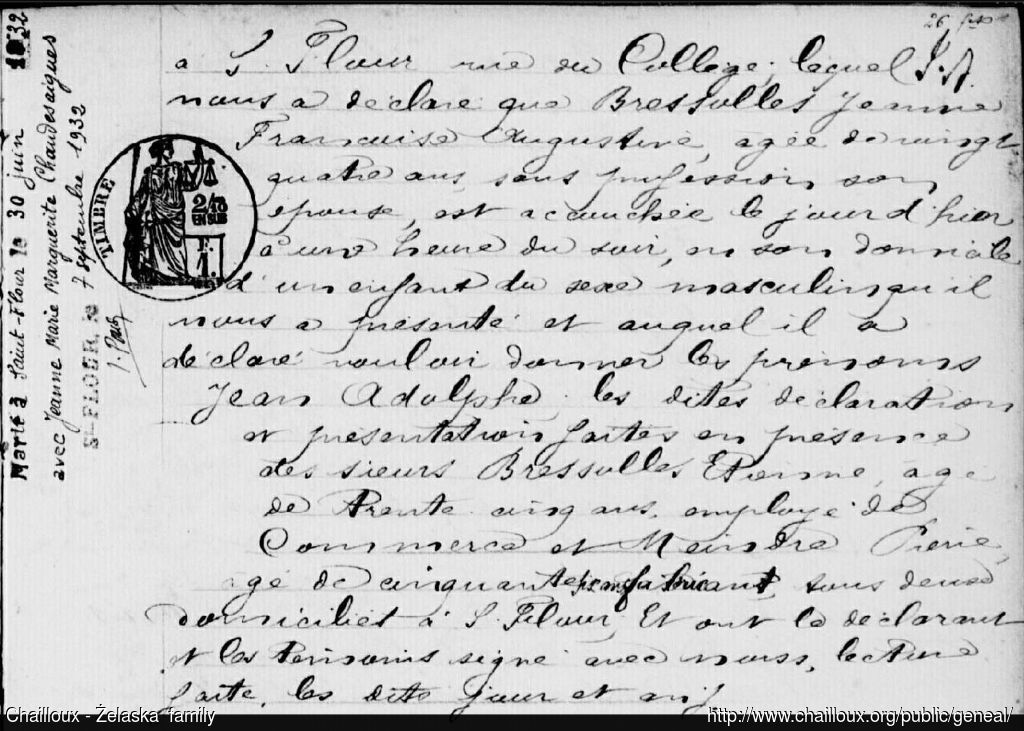 26
a S. Flour rue du Collège; lequel
nous a déclaré que Bressolles Jeanne
Francoise Augustine, agée de vingt
quatre ans, sans profession son
épouse, est accouchée le jour d'hier
à une heure du soir, en son domicile
d'un enfant du sexe masculin qu'il
nous a présenté et auquel il a
déclaré vouloir donner les prénoms
Jean Adolphe. les dites déclaration
et présentation faites en présence
des sieurs Bressolles Etienne, agé
de trente cinq ans, employé de
Commerce et Meindre Pierre,
agé de cinquante fabricant, tous deux
domiciliés à S. Flour, Et ont le déclarant
et les témoins signé avec nous, lecture
faite, les dits jour et an
Marié à Saint-Flour le 30 juin 1932
avec Jeanne Marie Marguerite Chaudesaigues
St-FLOUR, le 7 septembre 1932
TIMBRE
Chailloux - Żelaska family
http://www.chailloux.org/public/geneal/